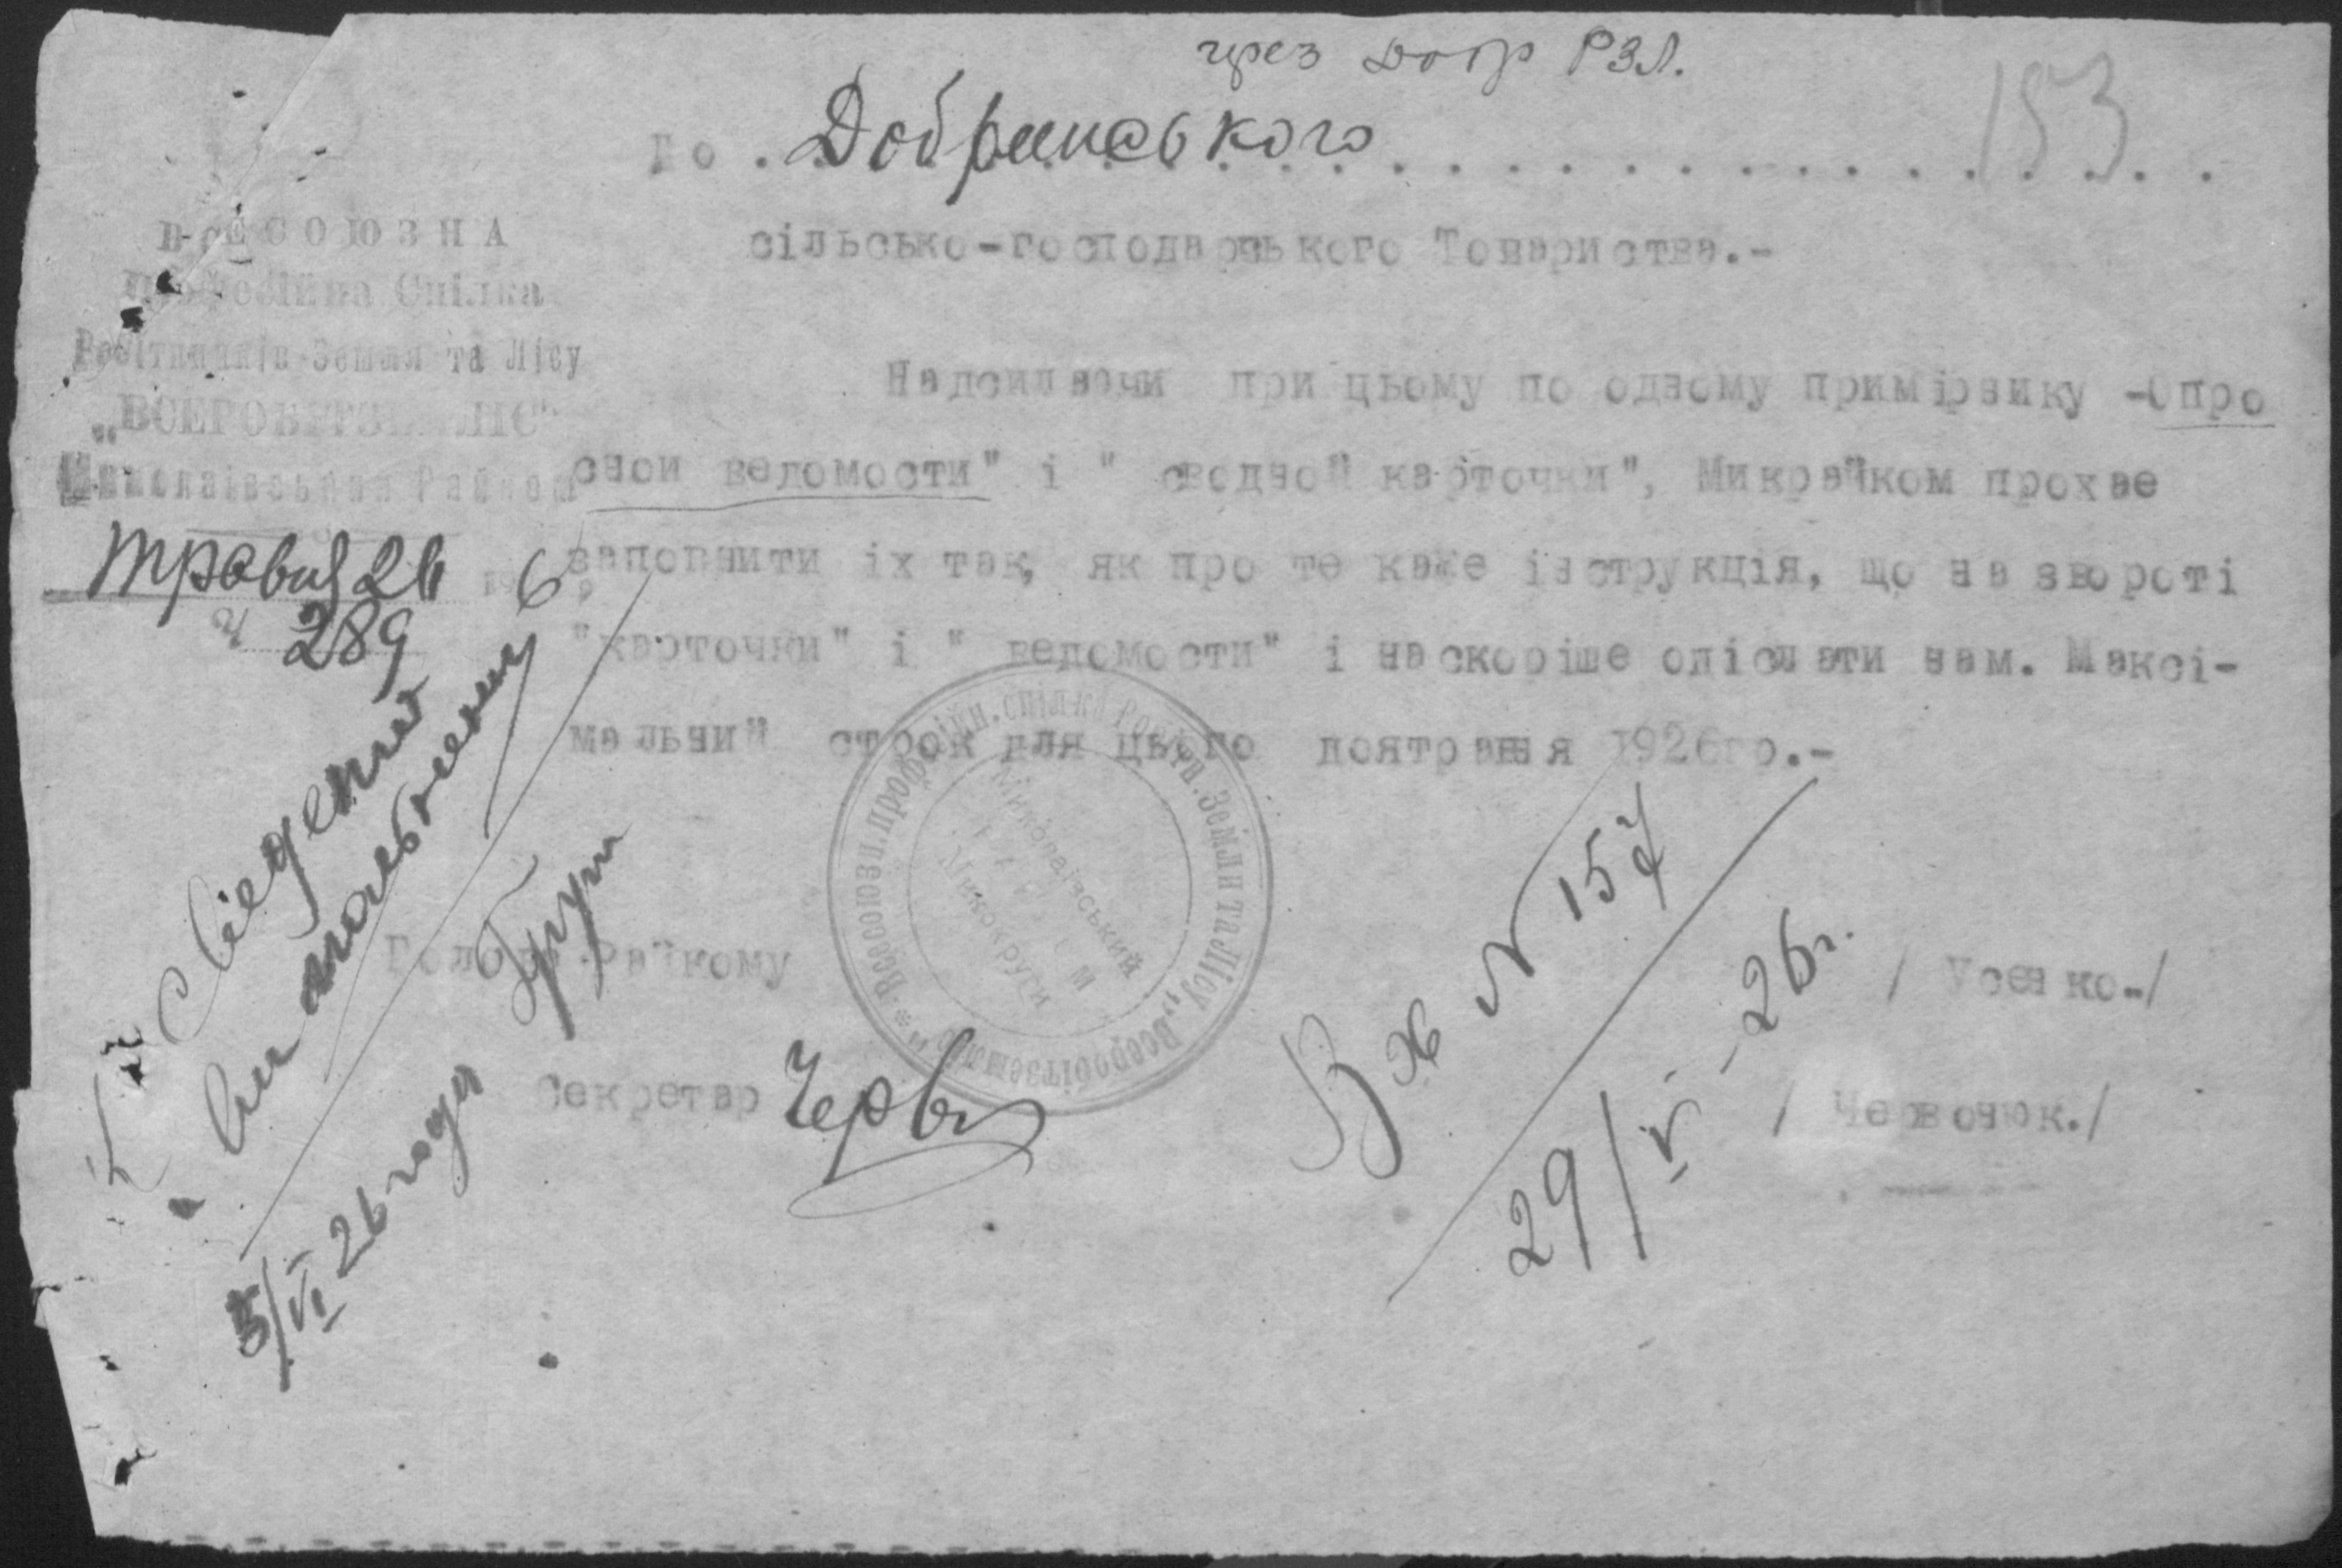 через Добр РЗЛ.
153
До . Добринського
сільсько-господарського Товариства.-
ВСЕСОЮЗНА
Професійна Спілка
Робітників Землі та Лісу
„ВСЕРОБІТЗЕМЛІС"
Миколаївський Райком
травня 26 192 6 р
Ч 289
Надсилаючи при цьому по одному примірнику -Опро
сной ведомости" і " сводной карточки", Микрайком прохае
заповнити іх так, як про те каже інструкція, що на звороті
"карточки" і " ведомости" і наскоріше одіслати нам. Максі-
мальний строк для цього травня 1926 р.-
К сведению
и
5/VI 26 года
Всесоюзн. Професійн. спілка Робітн. Землі та Лісу „Всеробітземліс"
Миколаївський
РАЙКОМ
Микокруги
Вх N 157
29/V - 26 г.
Голова Райкому / Усенко.-/
Секретар Черв / Червонюк./